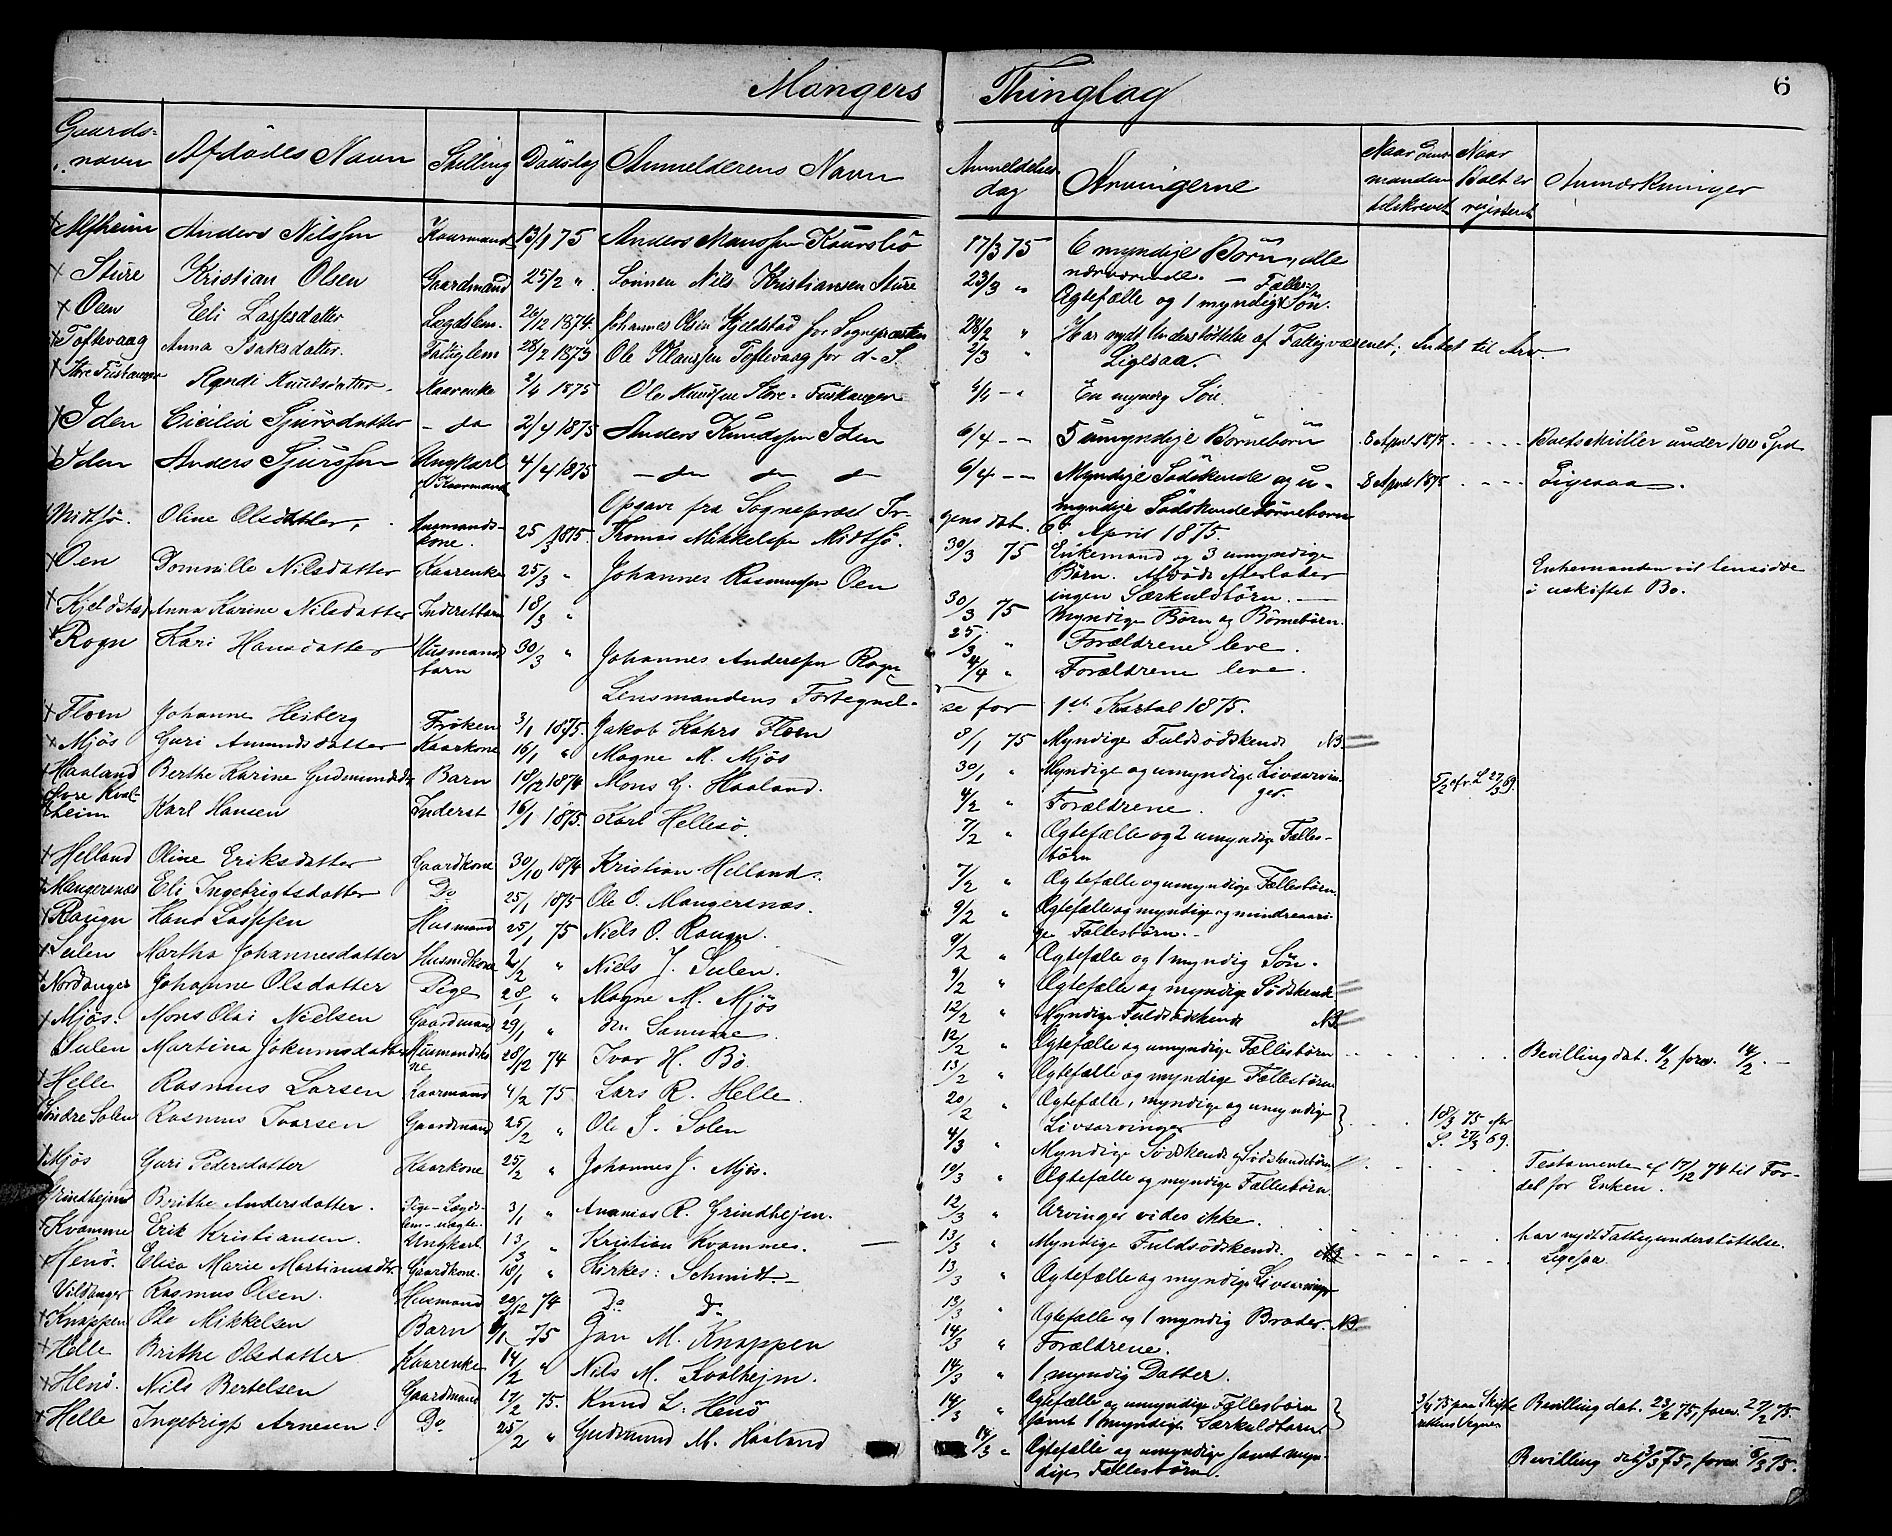 Mangers Thinglag
6
Gaards- navn | Afdødes Navn | Stilling | Dødsdag | Anmelderens Navn | Anmeldelses dag | Arvingerne | Naar Lens- manden tilskrevet | Naar Boet er registeret | Anmærkninger
Alfheim | Anders Nilssen | Kaarmand | 13/1 75 | Anders Monssen | 17/3 75 | 6 myndige Børn, alle nærværende.
Sture | Kristian Olsen | Gaardmand | 25/2 " | Sønnen Nils Kristiansen Sture | 23/3 " | Ægtefælle og 1 myndig Fælles- Søn.
Oen | Eli Lassesdatter | Lægdslem | /12 1874 | Johannes Olsen Kjeldstad for Sognepræsten | 28/2 " | Har nydt Understøttelse af Fattigvæsenet; Intet til Arv.
Toftevaag | Anna Isaksdatter | Fattiglem | 28/2 1873 | Ole Klaussen Toftevaag for d. S. | 2/3 " | Ligesaa.
Knudsdatter | Kaarenke | 2/4 1875 | Ole Knudsen | En myndig Søn
Iden | Cicilia Sjursdatter | - do | 2/4 1875 | Anders Knudssen Iden | 6/4 - - | 5 umyndige Børnebørn | 8 April 1875. | - - - - | Boets Midler under 100 Spd
Iden | Anders Sjurssen | Ungkarl Kaarmand | 4/4 1875 | - do do do | 6/4 - - | Myndige Sødskende og u- myndige Sødskendebørnebørn | 8 April 1875. | - - - - | Ligesaa.
Opgave fra Sognepræst Jr- gens dat. 6te April 1875.
Midtsø. | Oline Olsdatter, | kone. | 25/3 1875 | Thomas Mikkelsen Midtsø. | 30/3 75 | Enkemand og 3 umyndige Børn. Afdøde efterlader ingen Særkuldbørn. | Enkemanden vil hensidde i uskiftet Bo.
Oen | Nilsdatter | Kaarenke | 25/3 " | Johannes Rasmussen Oen | 30/3 75 | Myndige Børn og Børnebørn.
Kjeldstad | Anna Karine Nilsdatter | Inderstbarn | 18/3 " | 25/3 " | Forældrene leve.
Rogn | Kari Hansdatter | Husmands barn | 30/3 " | Johannes Andersen Rogn | 4/4 " | Forældrene leve.
Lensmandens Fortegnel- se for 1ste Kvartal 1875.
Floen | Johanne Heiberg | Frøken | 3/1 1875. | Jakob Kahrs Floen | 8/1 75 | Myndige Fuldsødskende NB
Mjøs | Guri Amundsdatter | Kaarkone | 16/1 " | Mogne M. Mjøs | 30/1 " | Myndige og umyndige Livsarvin- ger. | 5/2 efr. L 27/3 69.
Haaland | Berthe Karine Gudmundsdtr | Barn | 18/12 1874 | Mons G. Haaland. | 4/2 " | Forældrene.
Øvre Kval- heim | Karl Hansen | Inderst | 16/1 1875. | Karl Hellesø. | 7/2 " | Ægtefælle og 2 umyndige Fælles- børn
Helland | Oline Eriksdatter | Gaardkone | 30/10 1874 | Kristian Helland. | 7/2 " | Ægtefælle og umyndige Fællesbørn.
Mangersnæs | Eli Ingebrigtsdatter | Do | 25/1 1875 | Ole O. Mangersnæs. | 9/2 " | Ægtefælle og myndige og mindreaari- ge Fællesbørn.
Rongn | Hans Lassesen | Husmand | 25/1 75 | Niels O. Rongn. | 9/2 " | Ægtefælle og 1 myndig Søn.
Sulen | Martha Johannesdatter | Husmdkone | 2/2 " | Niels J. Sulen. | 9/2 " | Ægtefælle og myndige Sødskende.
Nordanger | Johanne Olsdatter | Pige | 28/1 " | Mogne M. Mjøs | 12/2 " | Myndige Fuldsødskende NB
Mjøs. | Mons Olai Nielsen | Gaardmand | 29/1 " | den Samme | 12/2 " | Ægtefælle og umyndige Fællesbørn | Bevilling dat. 9/2 forev. 14/2.
Sulen | Martina Jokumsdatter | Husmandsko ne | 28/12 74 | Ivar H. Bø. | 13/2 " | Ægtefælle og myndige Fællesbørn
Helle | Rasmus Larsen | Kaarmand | 4/2 75 | Lars R. Helle. | 20/2 " | Ægtefælle, myndige og umyndige Livsarvinger | 18/3 75 efter L. 27/3 69.
Søndre Solen | Rasmus Ivarsen | Gaardmand | 25/2 " | Ole S. Solen | 4/3 " | Myndige Sødskende og Sødskendebørn
Mjøs | Guri Pedersdatter | Kaarkone | 25/2 " | Johannes J. Mjøs. | 10/3 " | Ægtefælle og myndige Fællesbørn. | Testamente af 17/12 74 til For- del for Enken.
Grindhejm | Brithe Andersdatter. | Pige - Lægds- lem | 3/1 " | Ananias R. Grindhejm. | 12/3 " | Arvinger vides ikke.
Kvamme | Erik Kristiansen. | Ungkarl. | 13/3 " | Kristian Kvammes. | 13/3 " | Myndige Fuldsødskende. NB | har nydt Fattigunderstøttelse.
Henø. | Elisa Marie Martinusdtr | Gaardkone. | 18/1 " | Kirkes: Schmidt | 13/3 " | Ægtefælle og myndige Livsarvinger | Ligesaa
Vildanger | Rasmus Olsen. | Husmand | 20/12 74 | Do do | 13/3 " | Ægtefælle og 1 myndig Broder. NB
Knappen | Ole Mikkelsen | Barn | 75 | Jan M. Knappen | 14/3 " | Forældrene.
Helle | Brithe Olsdatter | Kaarenke | 14/2 " | Nils M. Kvalhejm. | 14/3 " | 1 myndig Datter.
Henø. | Nils Bertelsen | Gaardmand | 17/2 75. | Knud L. Henø | 14/3 " | Ægtefælle og umyndige Fællesbørn samt 1 myndigt Særkuldbarn. | 3/4 75 paa Skifte rettens Vegne | Bevilling dat. 23/2 75, forev. 27/2 75.
Helle | Ingebrigt Arnesen. | Do. | 25/2 " | Gudmund M. Haaland | 14/3 " | Ægtefælle og umyndige samt myn- dige Fællesbørn. | Bevilling dat 3/3 75, forev. 6/3 75.